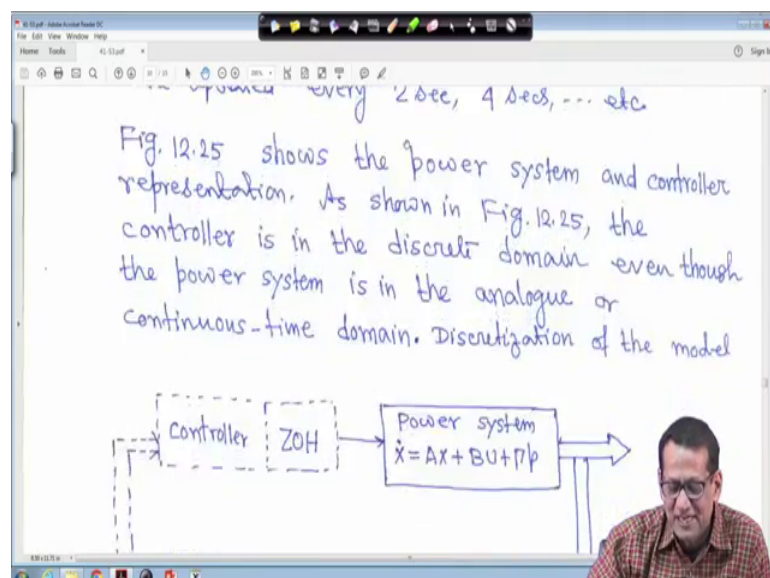 41-53.pdf - Adobe Acrobat Reader DC
File Edit View Window Help
Home Tools 41-53.pdf × Sign In
every 2 sec, 4 secs, ... etc
Fig. 12.25 shows the power system and controller
representation. As shown in Fig. 12.25, the
controller is in the discrete domain even though
the power system is in the analogue or
continuous-time domain. Discretization of the model
Controller ZOH
Power system
ẋ = AX + BU + Γp